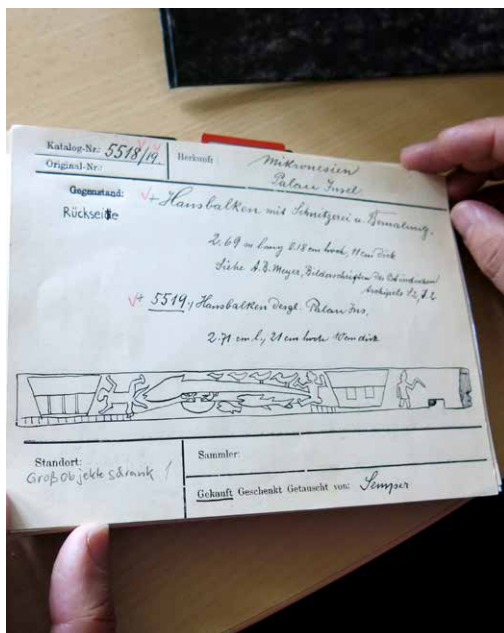 Katalog-Nr.: 5518/19.
Original-Nr.:
Herkunft
Mikronesien
Palau Insel
Gegenstand:
Rückseite
+ Hausbalken mit Schnitzerei u. Bemalung.
2.69 m lang 0.18 cm hoch, 11 cm dick
Siehe A.B. Meyer, Bilderschriften des Ostindischen
Archipels
+ 5519, Hausbalken desgl. Palau Ins.
2.71 cm l., 21 cm hoch 10 cm dick
Standort:
Großobjekteschrank 1
Sammler:
Gekauft Geschenkt Getauscht von: Semper